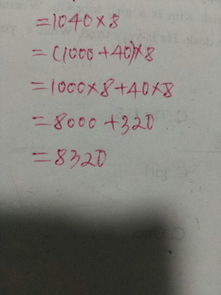 =1040×8
=(1000+40)×8
=1000×8+40×8
=8000+320
=8320